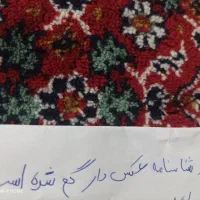 شناسنامه عکس دار گم شده است